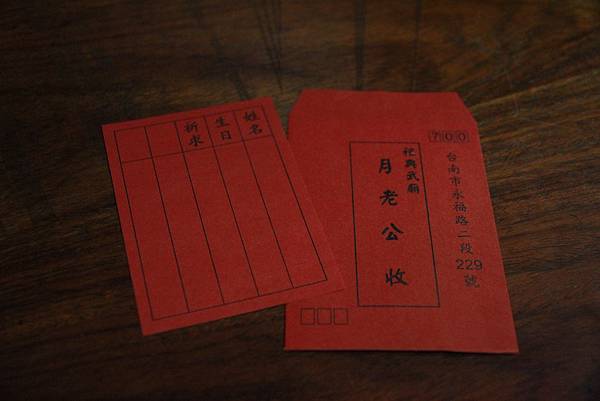 姓名
生日
祈求
700
台南市永福路二段229號
祀典武廟
月老公收